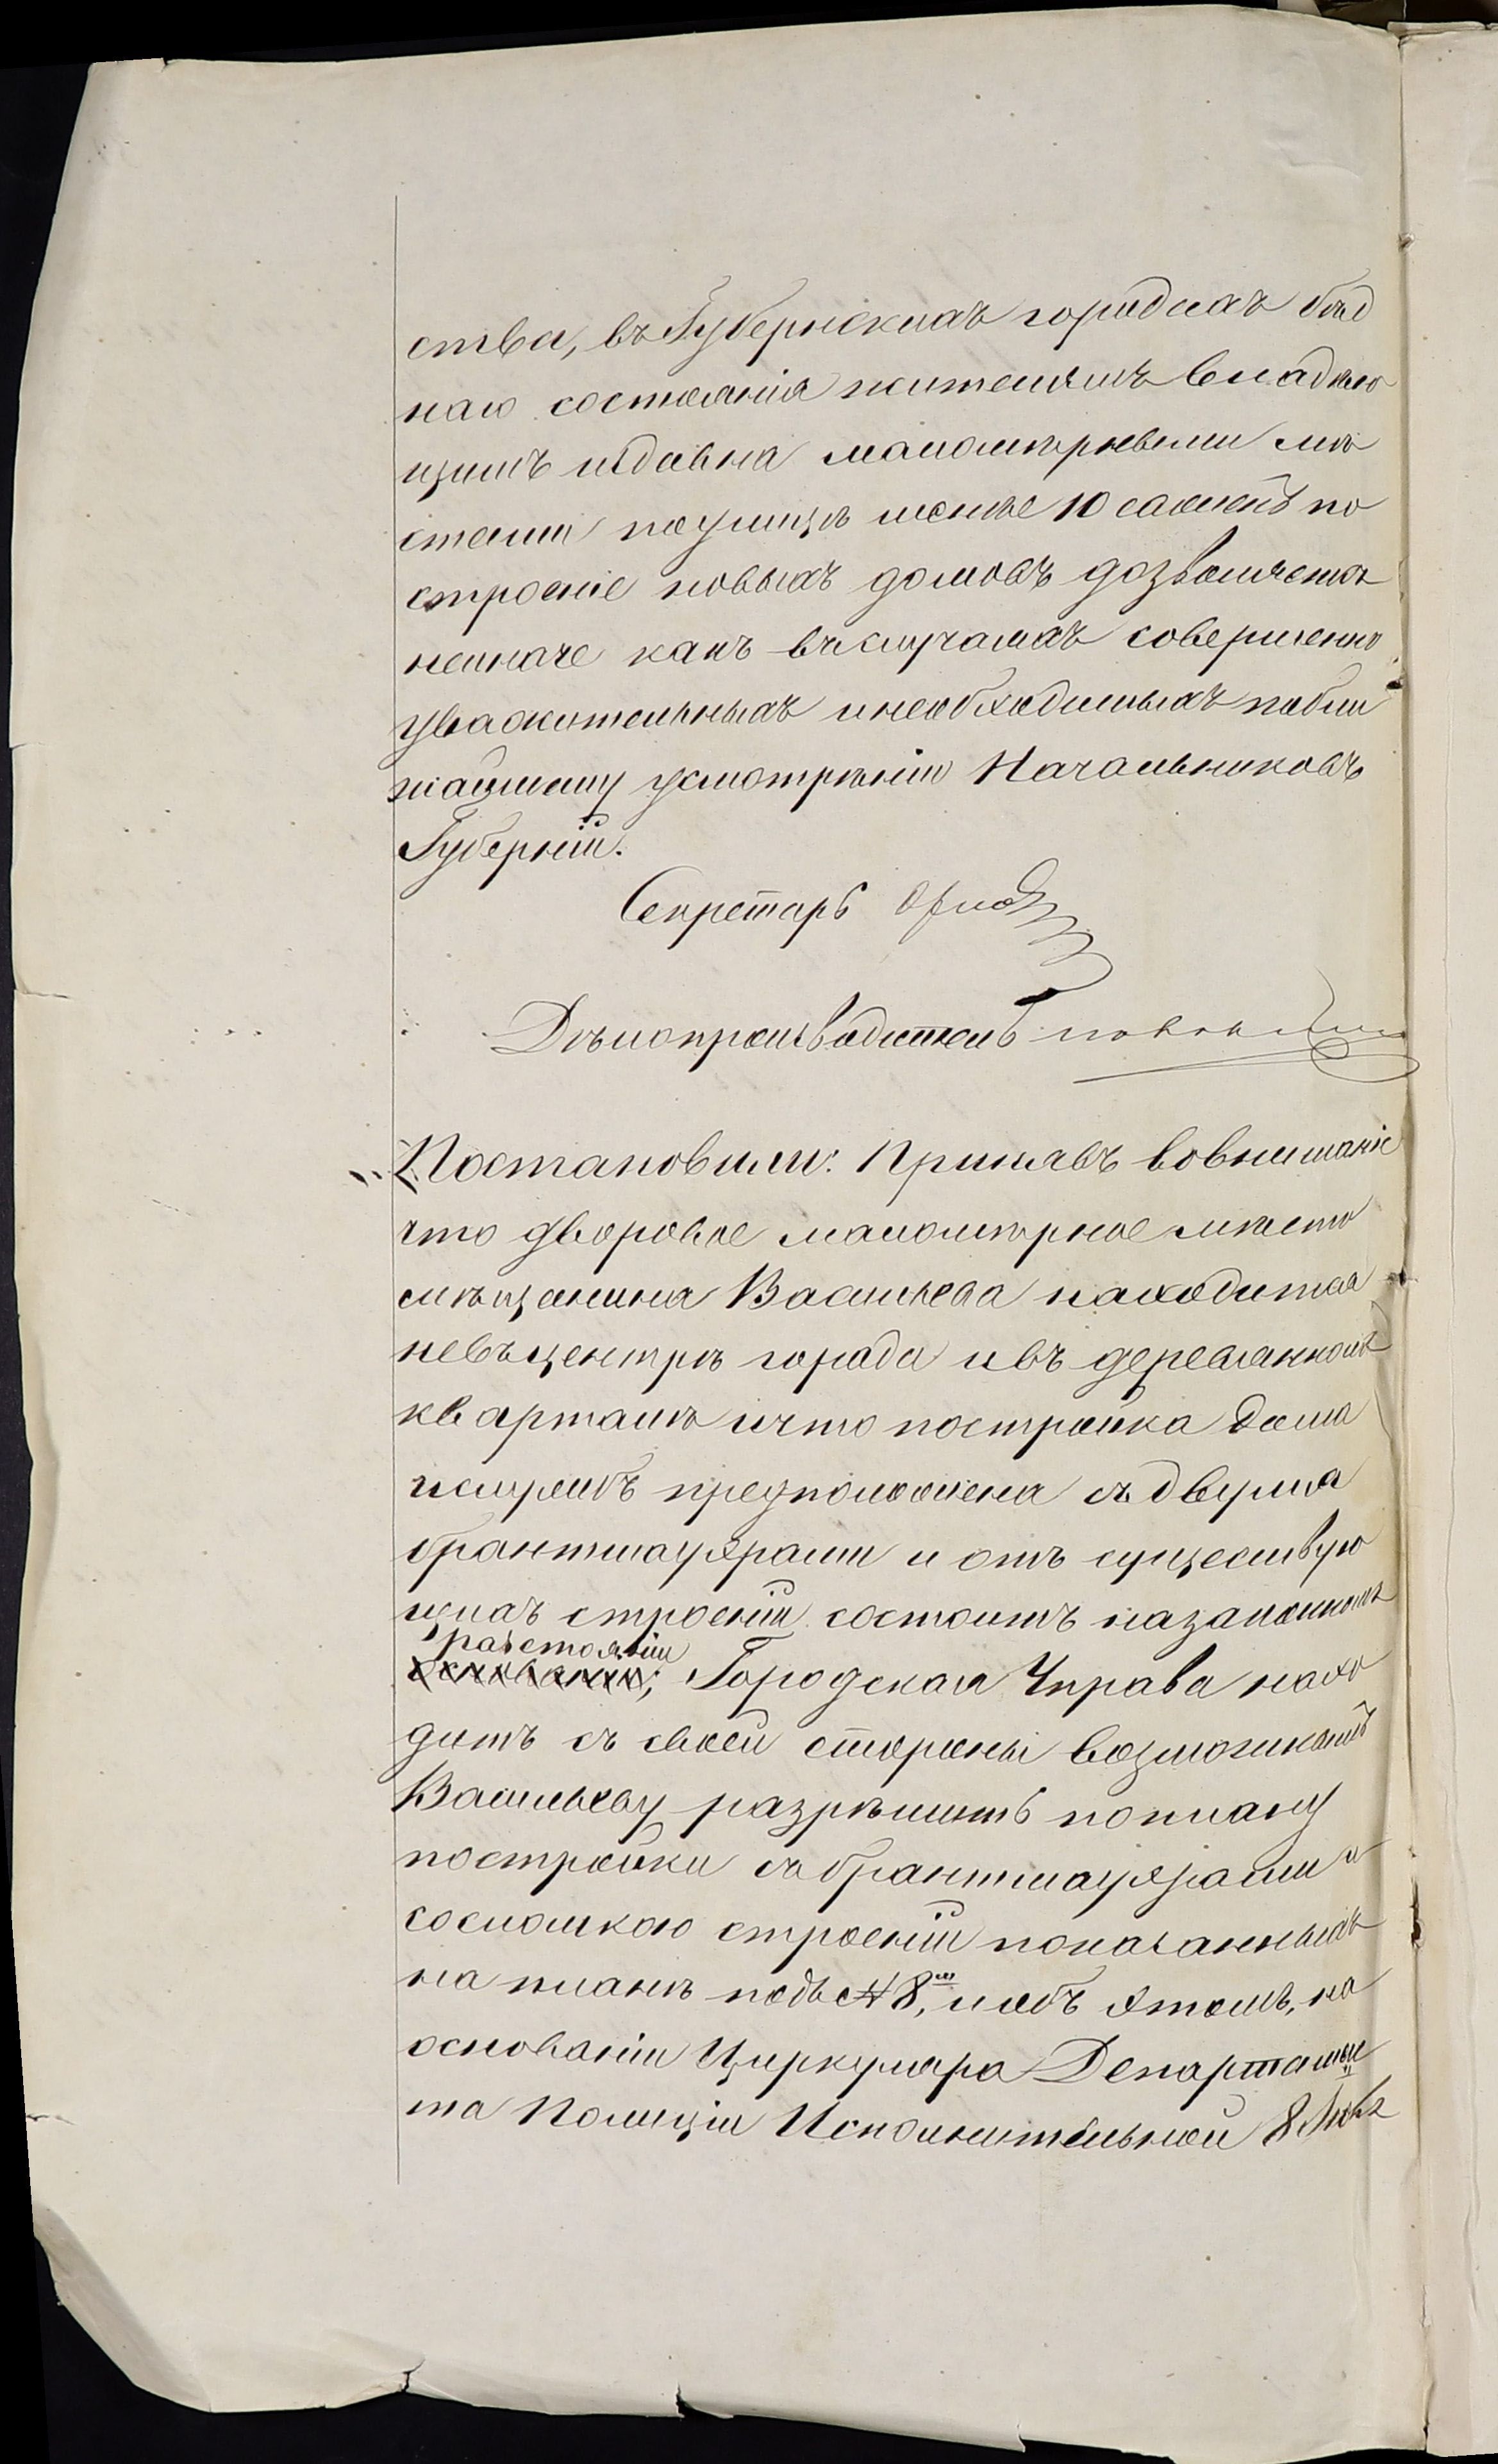 ства, въ Губернскихъ городахъ бѣд
наго состоянія жителямъ владѣю
щимъ издавна маломѣрными мѣ
стами по улицѣ менѣе 10 саженъ по
строеніе новыхъ домовъ дозволяется
неиначе какъ въ случаяхъ совершенно
уважительныхъ и необходимыхъ поблиз
жайшему усмотрѣнію Начальниковъ
Губерніи.
Секретарь
Дѣлопроизводитель
Постановили: Принявъ вовниманіе
что дворовое маломѣрное мѣсто
мѣщанина Васильева находится
невъ центрѣ города и въ деревянномъ
кварталѣ и что постройка дома
предположена съ двумя
брантмауэрами и отъ существую
щихъ строеній состоитъ на законномъ
разстояніи
Городская Управа нахо
дитъ съ своей стороны возможнымъ
Васильеву разрѣшить по плану
постройки съ брантмауэрами и
со сломкою строеній показанныхъ
на планѣ подъ № 8, и объ этомъ, на
основаніи Циркуляра Департамен
та Полиціи Исполнительной 8